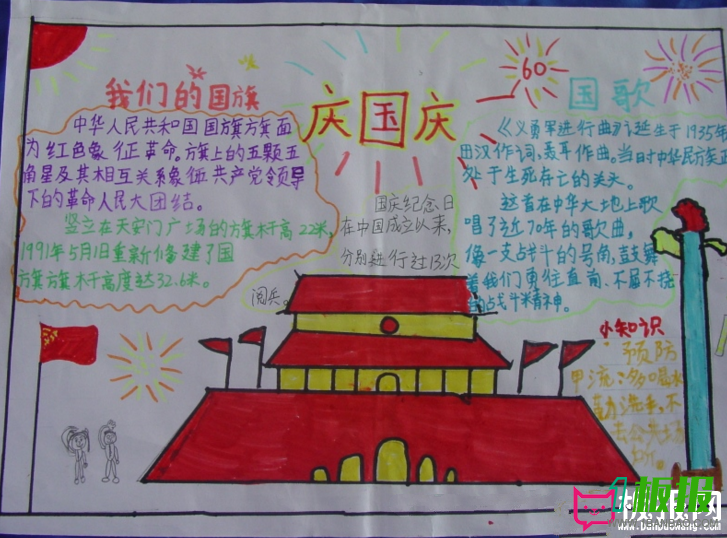 我们的国旗
中华人民共和国国旗旗面
为红色象征革命。旗上的五颗五
角星及其相互关系象征共产党领导
下的革命人民大团结。
竖立在天安门广场的旗杆高22米,
1991年5月1日重新修建了国
旗旗杆高度达32.6米。
庆国庆
60
国庆纪念日
在中国成立以来,
分别进行过13次
阅兵。
国歌
《义勇军进行曲》诞生于1935年
田汉作词,聂耳作曲。当时中华民族正
处于生死存亡的关头。
这首在中华大地上歌
唱了近70年的歌曲,
像一支战斗的号角,鼓舞
着我们勇往直前、不屈不挠
战斗精神。
小知识
预防
甲流:多喝水
勤洗手,不
去公共场
所。
板报网